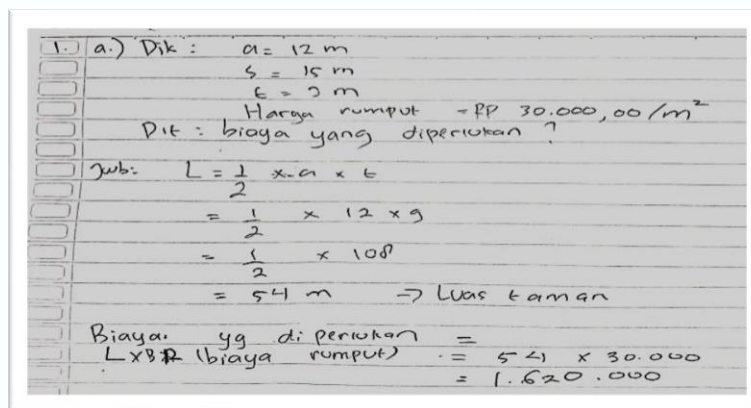 1. a.) Dik : a = 12 m
s = 15 m
t = 9 m
Harga rumput = RP 30.000,00/m²
Dit : biaya yang diperlukan ?
Jwb: L = 1/2 x a x t
= 1/2 x 12 x 9
= 1/2 x 108
= 54 m → Luas taman
Biaya yg diperlukan =
LxBR (biaya rumput) = 54 x 30.000
= 1.620.000